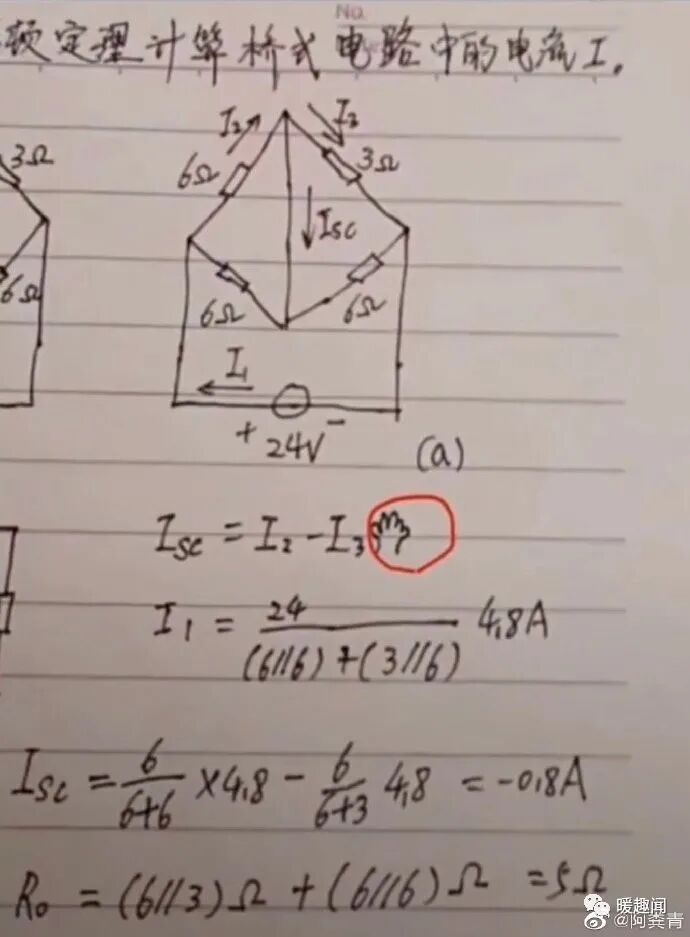 No.
顿定理计算桥式电路中的电流I。
I₂
I₃
3Ω
6Ω
3Ω
Isc
6Ω
6Ω
6Ω
I₁
+ 24V -
(a)
Isc = I₂ - I₃
I₁ = 24/((6//6)+(3//6)) 4.8A
Isc = 6/(6+6) ×4.8 - 6/(6+3) 4.8 = -0.8A
R₀ = (6//3)Ω + (6//6)Ω = 5Ω
暖趣闻
@阿粪青